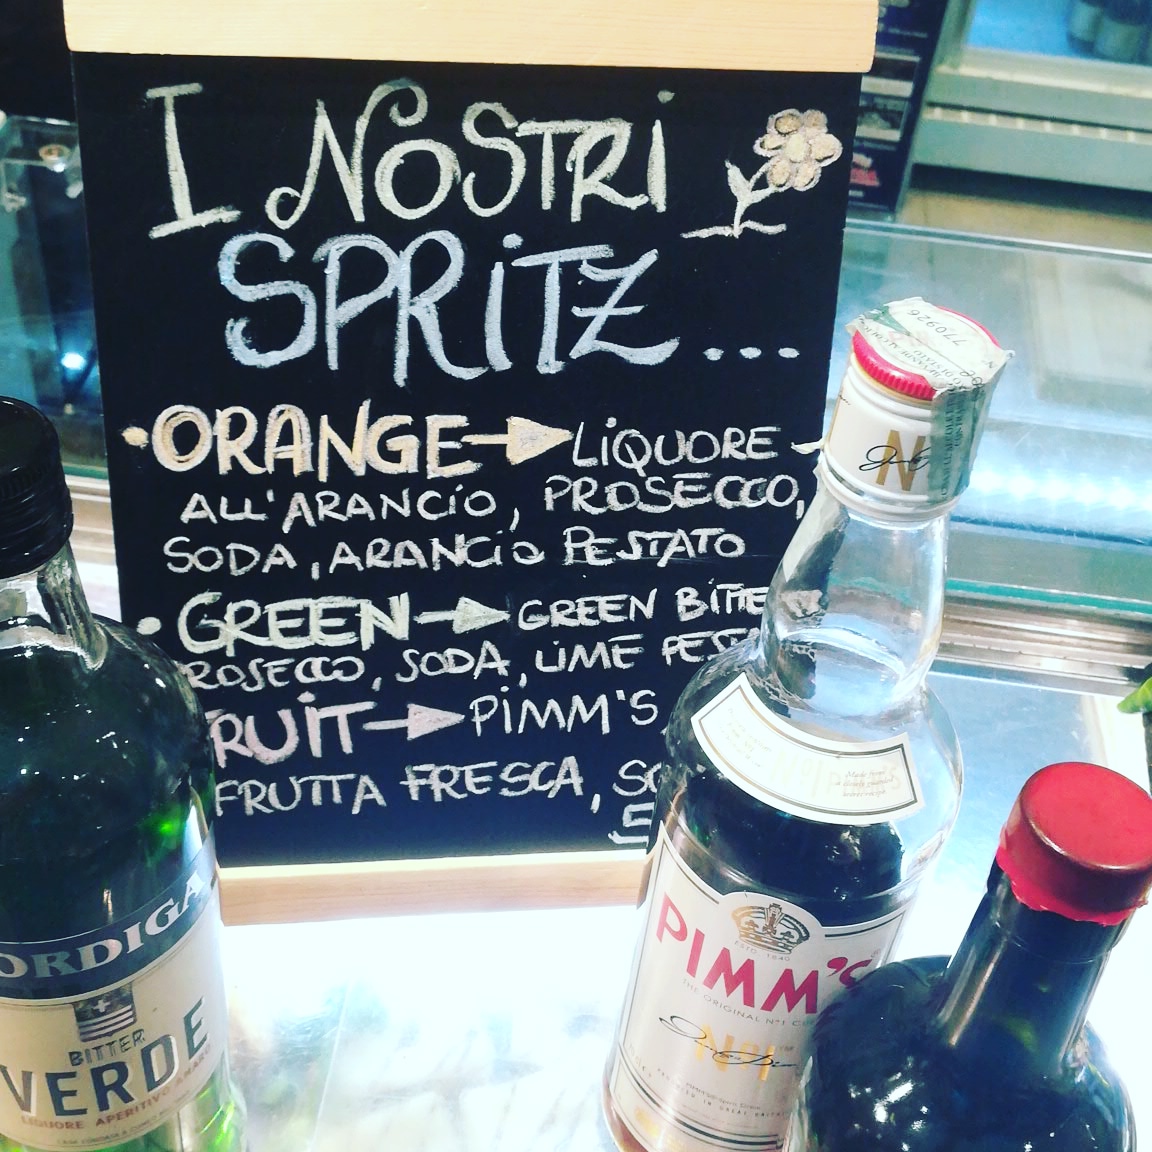 I NOSTRI
SPRITZ...
•ORANGE→LIQUORE
ALL'ARANCIO, PROSECCO,
SODA, ARANCIO PESTATO
•GREEN→GREEN BITTE
ROSECCO, SODA, LIME PES
RUIT→PIMM'S
FRUTTA FRESCA, SO
5
770926
N
ORDIGA
BITTER
VERDE
LIQUORE APERITIVO AMARO
ESTD. 1840
PIMM'S
THE ORIGINAL Nº1 CU
Nº1